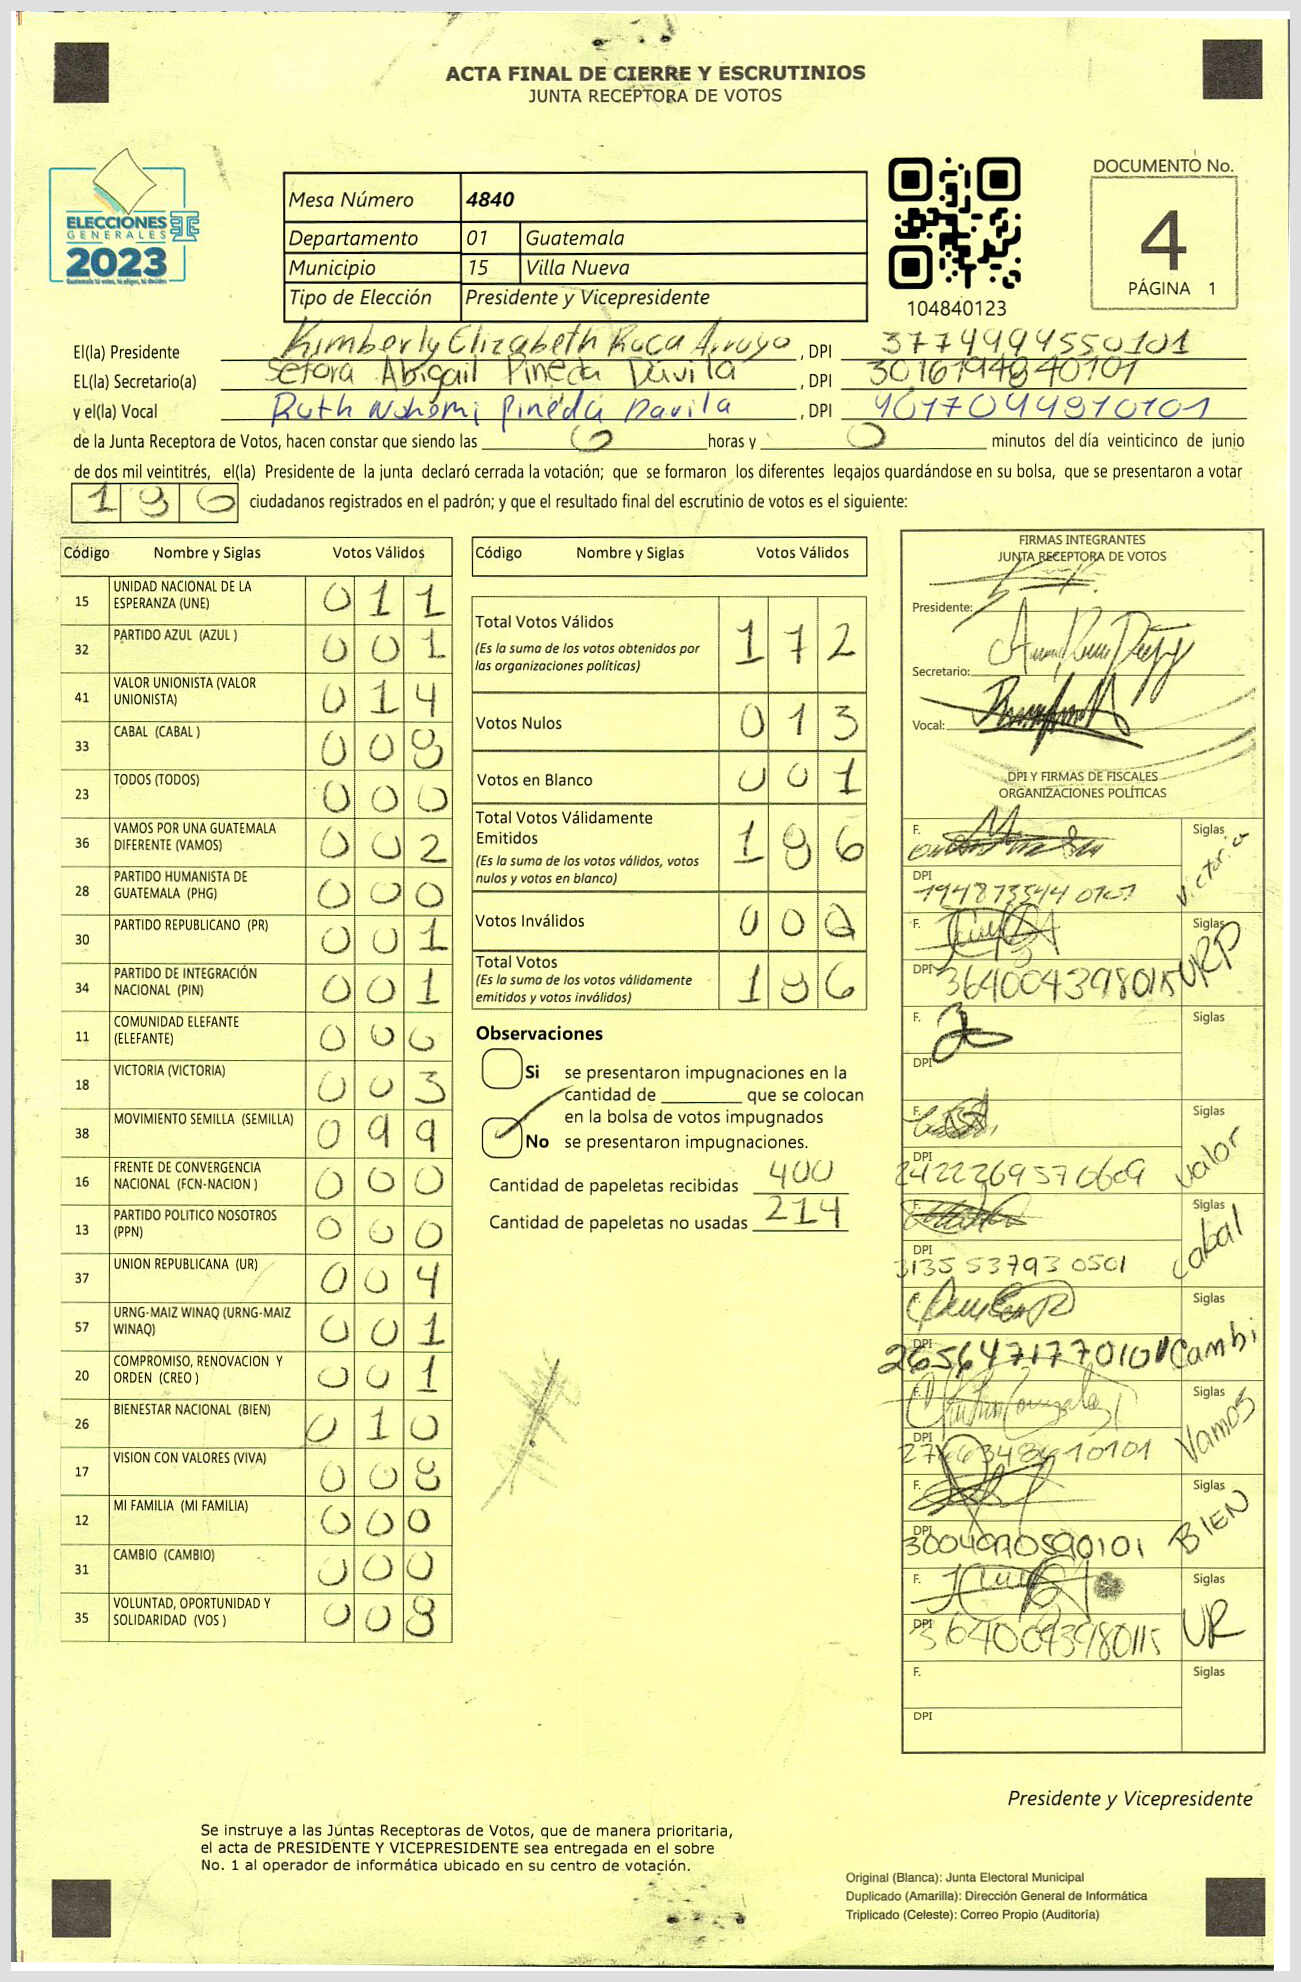 ACTA FINAL DE CIERRE Y ESCRUTINIOS
JUNTA RECEPTORA DE VOTOS
ELECCIONES
GENERALES
2023
Mesa Número 4840
Departamento 01 Guatemala
Municipio 15 Villa Nueva
Tipo de Elección Presidente y Vicepresidente
104840123
DOCUMENTO No.
4
PÁGINA 1
El(la) Presidente Kimberly Elizabeth Ruca Arroyo, DPI 3774994550101
EL(la) Secretario(a) Sefora Abigail Pineda Davila, DPI 3016194840101
y el(la) Vocal Ruth Nohemi Pineda Davila, DPI
de la Junta Receptora de Votos, hacen constar que siendo las 6 horas y 0 minutos del día veinticinco de junio
de dos mil veintitrés, el(la) Presidente de la junta declaró cerrada la votación; que se formaron los diferentes legajos quardándose en su bolsa, que se presentaron a votar
186 ciudadanos registrados en el padrón; y que el resultado final del escrutinio de votos es el siguiente:
Código Nombre y Siglas Votos Válidos
15 UNIDAD NACIONAL DE LA ESPERANZA (UNE) 0 1 1
32 PARTIDO AZUL (AZUL ) 0 0 1
41 VALOR UNIONISTA (VALOR UNIONISTA) 0 1 4
33 CABAL (CABAL ) 0 0 8
23 TODOS (TODOS) 0 0 0
36 VAMOS POR UNA GUATEMALA DIFERENTE (VAMOS) 0 0 2
28 PARTIDO HUMANISTA DE GUATEMALA (PHG) 0 0 0
30 PARTIDO REPUBLICANO (PR) 0 0 1
34 PARTIDO DE INTEGRACIÓN NACIONAL (PIN) 0 0 1
11 COMUNIDAD ELEFANTE (ELEFANTE) 0 0 0
18 VICTORIA (VICTORIA) 0 0 3
38 MOVIMIENTO SEMILLA (SEMILLA) 0 9 9
16 FRENTE DE CONVERGENCIA NACIONAL (FCN-NACION ) 0 0 0
13 PARTIDO POLITICO NOSOTROS (PPN) 0 0 0
37 UNION REPUBLICANA (UR) 0 0 4
57 URNG-MAIZ WINAQ (URNG-MAIZ WINAQ) 0 0 1
20 COMPROMISO, RENOVACION Y ORDEN (CREO ) 0 0 1
26 BIENESTAR NACIONAL (BIEN) 0 1 0
17 VISION CON VALORES (VIVA) 0 0 8
12 MI FAMILIA (MI FAMILIA) 0 0 0
31 CAMBIO (CAMBIO) 0 0 0
35 VOLUNTAD, OPORTUNIDAD Y SOLIDARIDAD (VOS ) 0 0 8
Código Nombre y Siglas Votos Válidos
Total Votos Válidos 1 7 2
(Es la suma de los votos obtenidos por
las organizaciones políticas)
Votos Nulos 0 1 3
Votos en Blanco 0 0 1
Total Votos Válidamente
Emitidos 1 8 6
(Es la suma de los votos válidos, votos
nulos y votos en blanco)
Votos Inválidos 0 0 0
Total Votos 1 8 6
(Es la suma de los votos válidamente
emitidos y votos inválidos)
Observaciones
Si se presentaron impugnaciones en la
cantidad de ________ que se colocan
en la bolsa de votos impugnados
No se presentaron impugnaciones.
Cantidad de papeletas recibidas 400
Cantidad de papeletas no usadas 214
FIRMAS INTEGRANTES
JUNTA RECEPTORA DE VOTOS
Presidente:
Secretario:
Vocal:
DPI Y FIRMAS DE FISCALES
ORGANIZACIONES POLÍTICAS
F. Siglas Victoria
DPI
F. Siglas URP
DPI 3640043980115
F. Siglas
DPI
F. Siglas Valor
DPI 2422269570609
F. Siglas Cabal
DPI 3135 53793 0501
F. Siglas Cambi
DPI 2656471770101
F. Siglas Vamos
DPI
F. Siglas BIEN
DPI
F. Siglas UR
DPI 3640043980115
F. Siglas
DPI
Presidente y Vicepresidente
Se instruye a las Juntas Receptoras de Votos, que de manera prioritaria,
el acta de PRESIDENTE Y VICEPRESIDENTE sea entregada en el sobre
No. 1 al operador de informática ubicado en su centro de votación.
Original (Blanca): Junta Electoral Municipal
Duplicado (Amarilla): Dirección General de Informática
Triplicado (Celeste): Correo Propio (Auditoría)